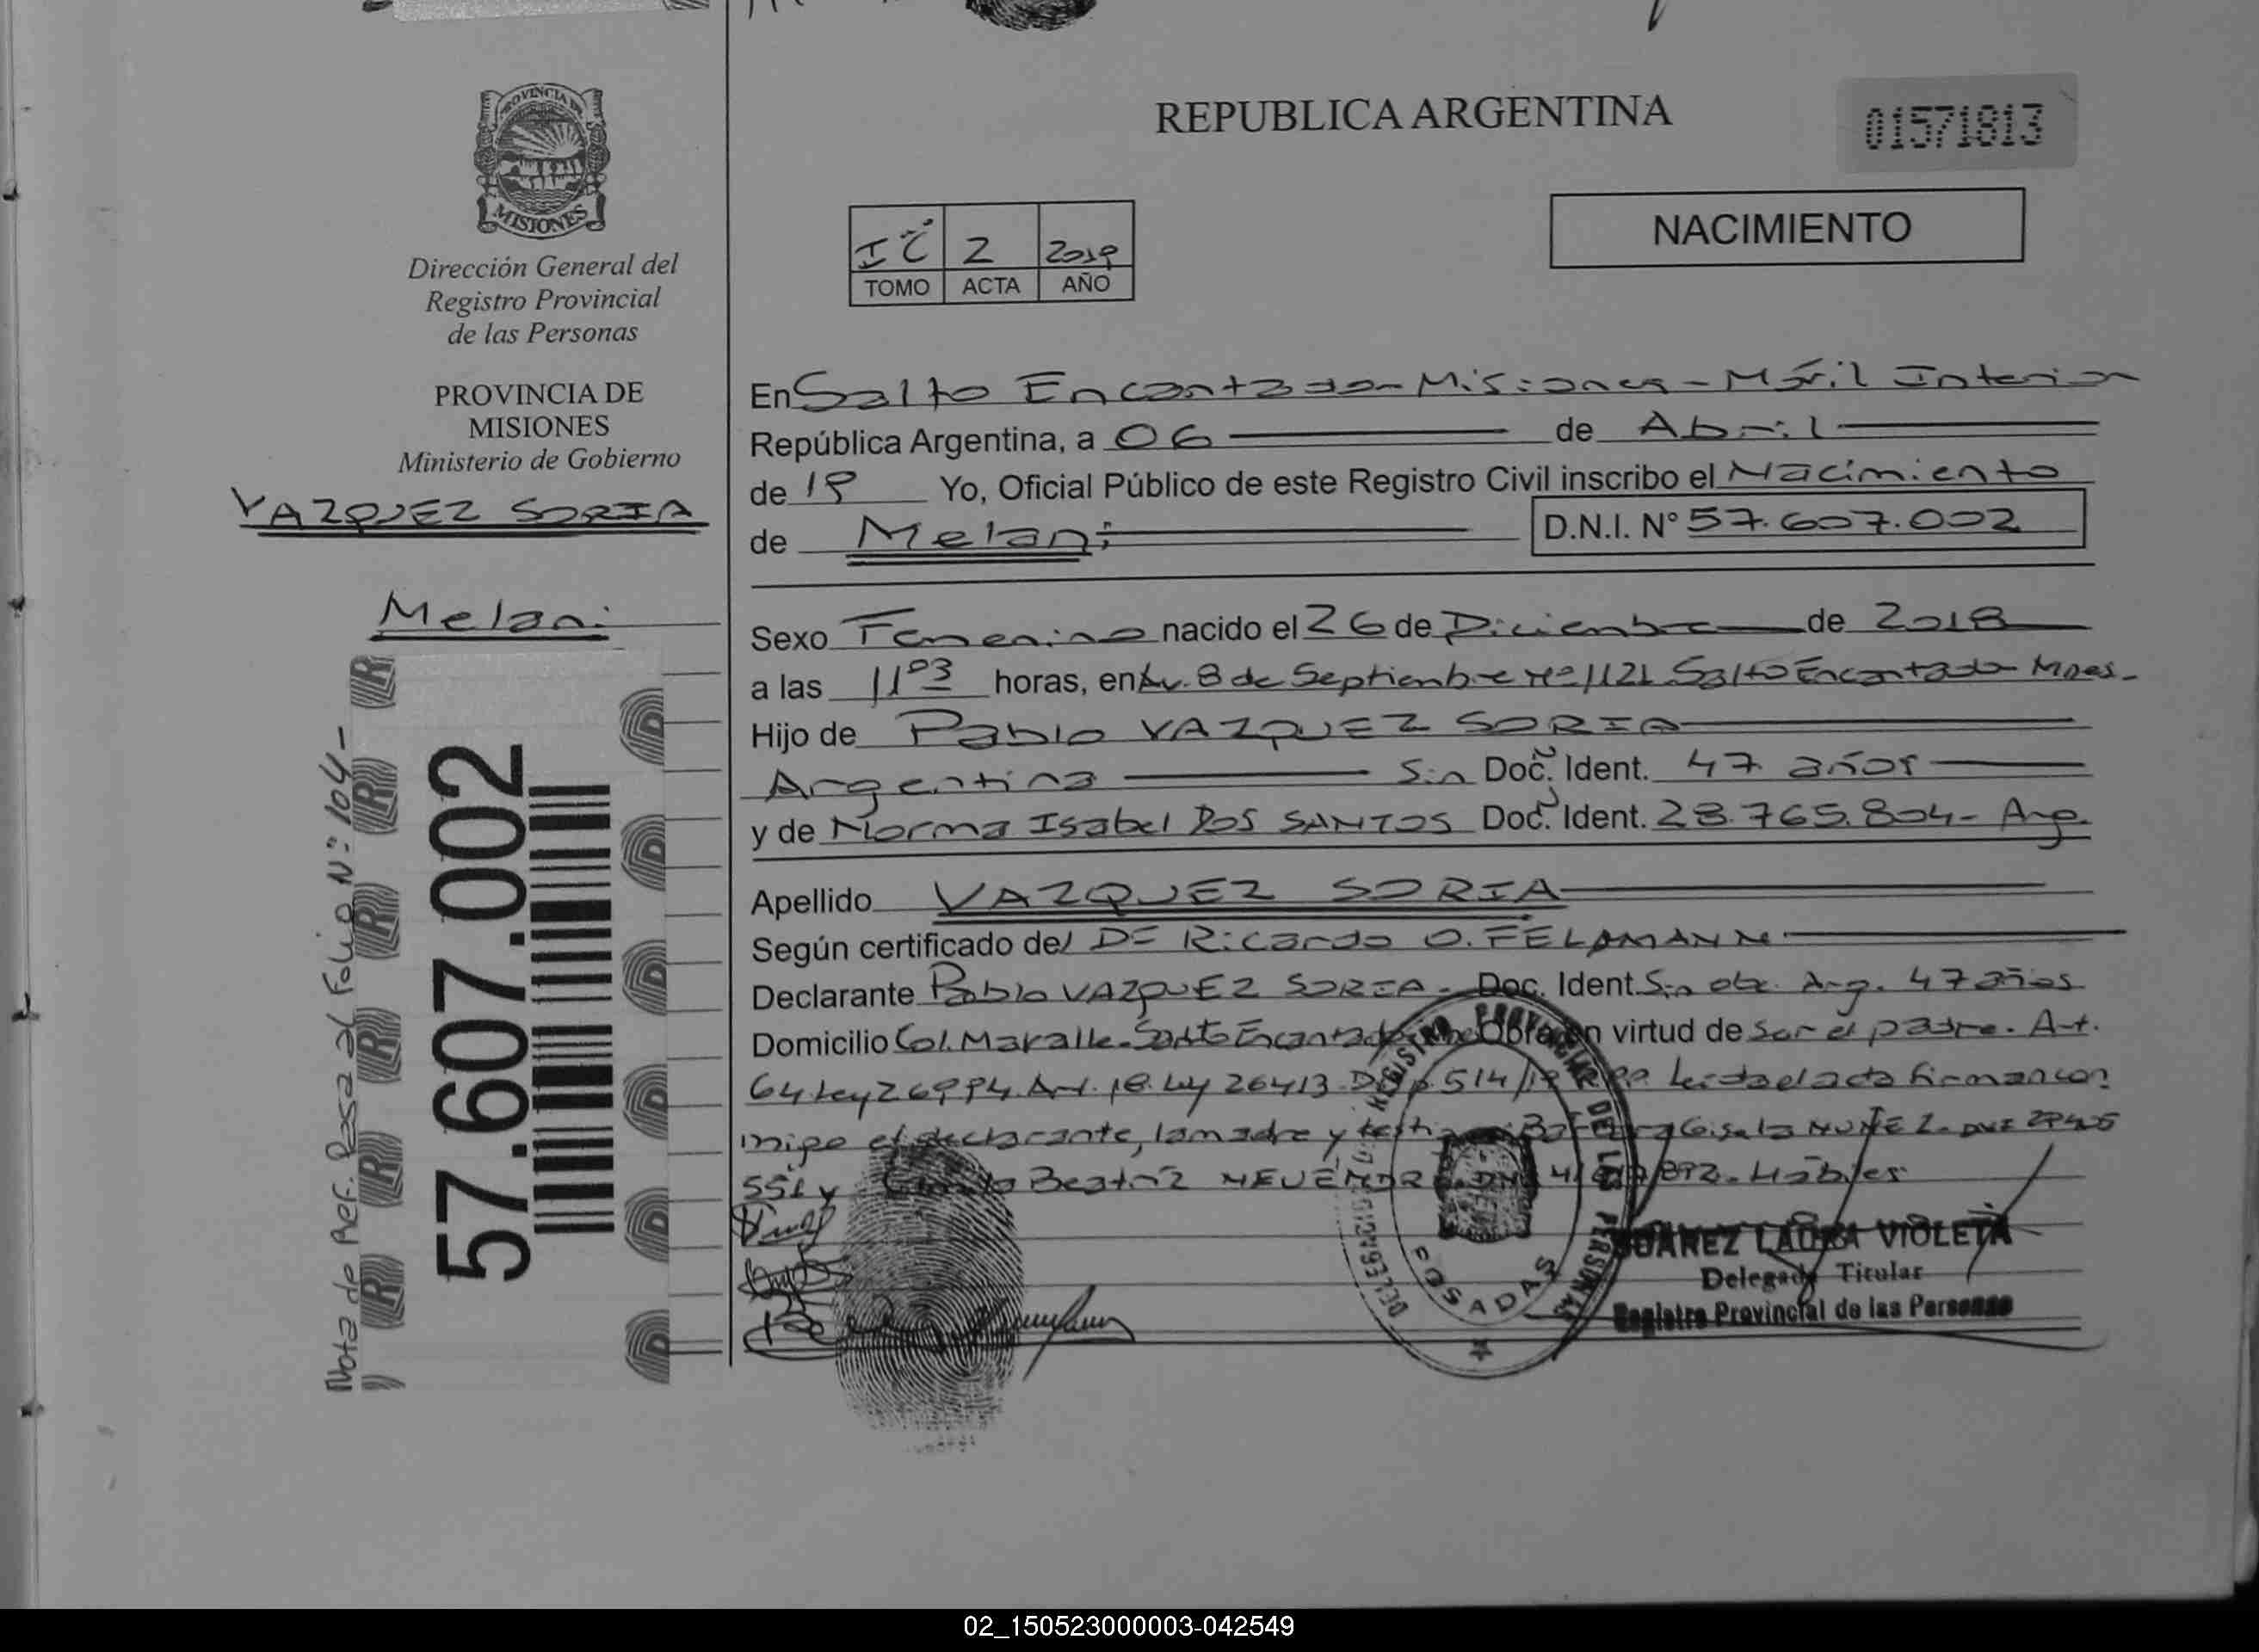 PROVINCIA DE
MISIONES
Dirección General del
Registro Provincial
de las Personas
PROVINCIA DE
MISIONES
Ministerio de Gobierno
VAZQUEZ SORIA
Melani
57.607.002
Nota de Ref. Pasa al Folio N° 104-
REPUBLICA ARGENTINA
01571813
NACIMIENTO
2 2019
TOMO ACTA AÑO
En Salto Encantado - Misiones - Móvil Interior
República Argentina, a 06 de Abril
de 19 Yo, Oficial Público de este Registro Civil inscribo el Nacimiento
de Melani D.N.I. N° 57.607.002
Sexo Femenino nacido el 26 de Diciembre de 2018
a las 11 03 horas, en Av. 8 de Septiembre N° 1121 Salto Encantado - Mnes.-
Hijo de Pablo VAZQUEZ SORIA
Argentina Sin Doc. Ident. 47 años
y de Norma Isabel DOS SANTOS Doc. Ident. 28.765.804- Arg.
Apellido VAZQUEZ SORIA
Según certificado del Dr Ricardo O. FELDMANN
Declarante Pablo VAZQUEZ SORIA - Doc. Ident. Sin Arg. 47 años
Domicilio Col. Salto Encantado Obra en virtud de ser el padre. Art.
64 Ley 26994. Art. 18. Ley 26413. 514/ Leida el acta firman con
migo el declarante, la madre y Gisela NUÑEZ DNI
551 y Beatriz Hábiles
REGISTRO PROVINCIAL DE LAS PERSONAS
POSADAS
SUAREZ LAURA VIOLETA
Delegada Titular
Registro Provincial de las Personas
02_150523000003-042549